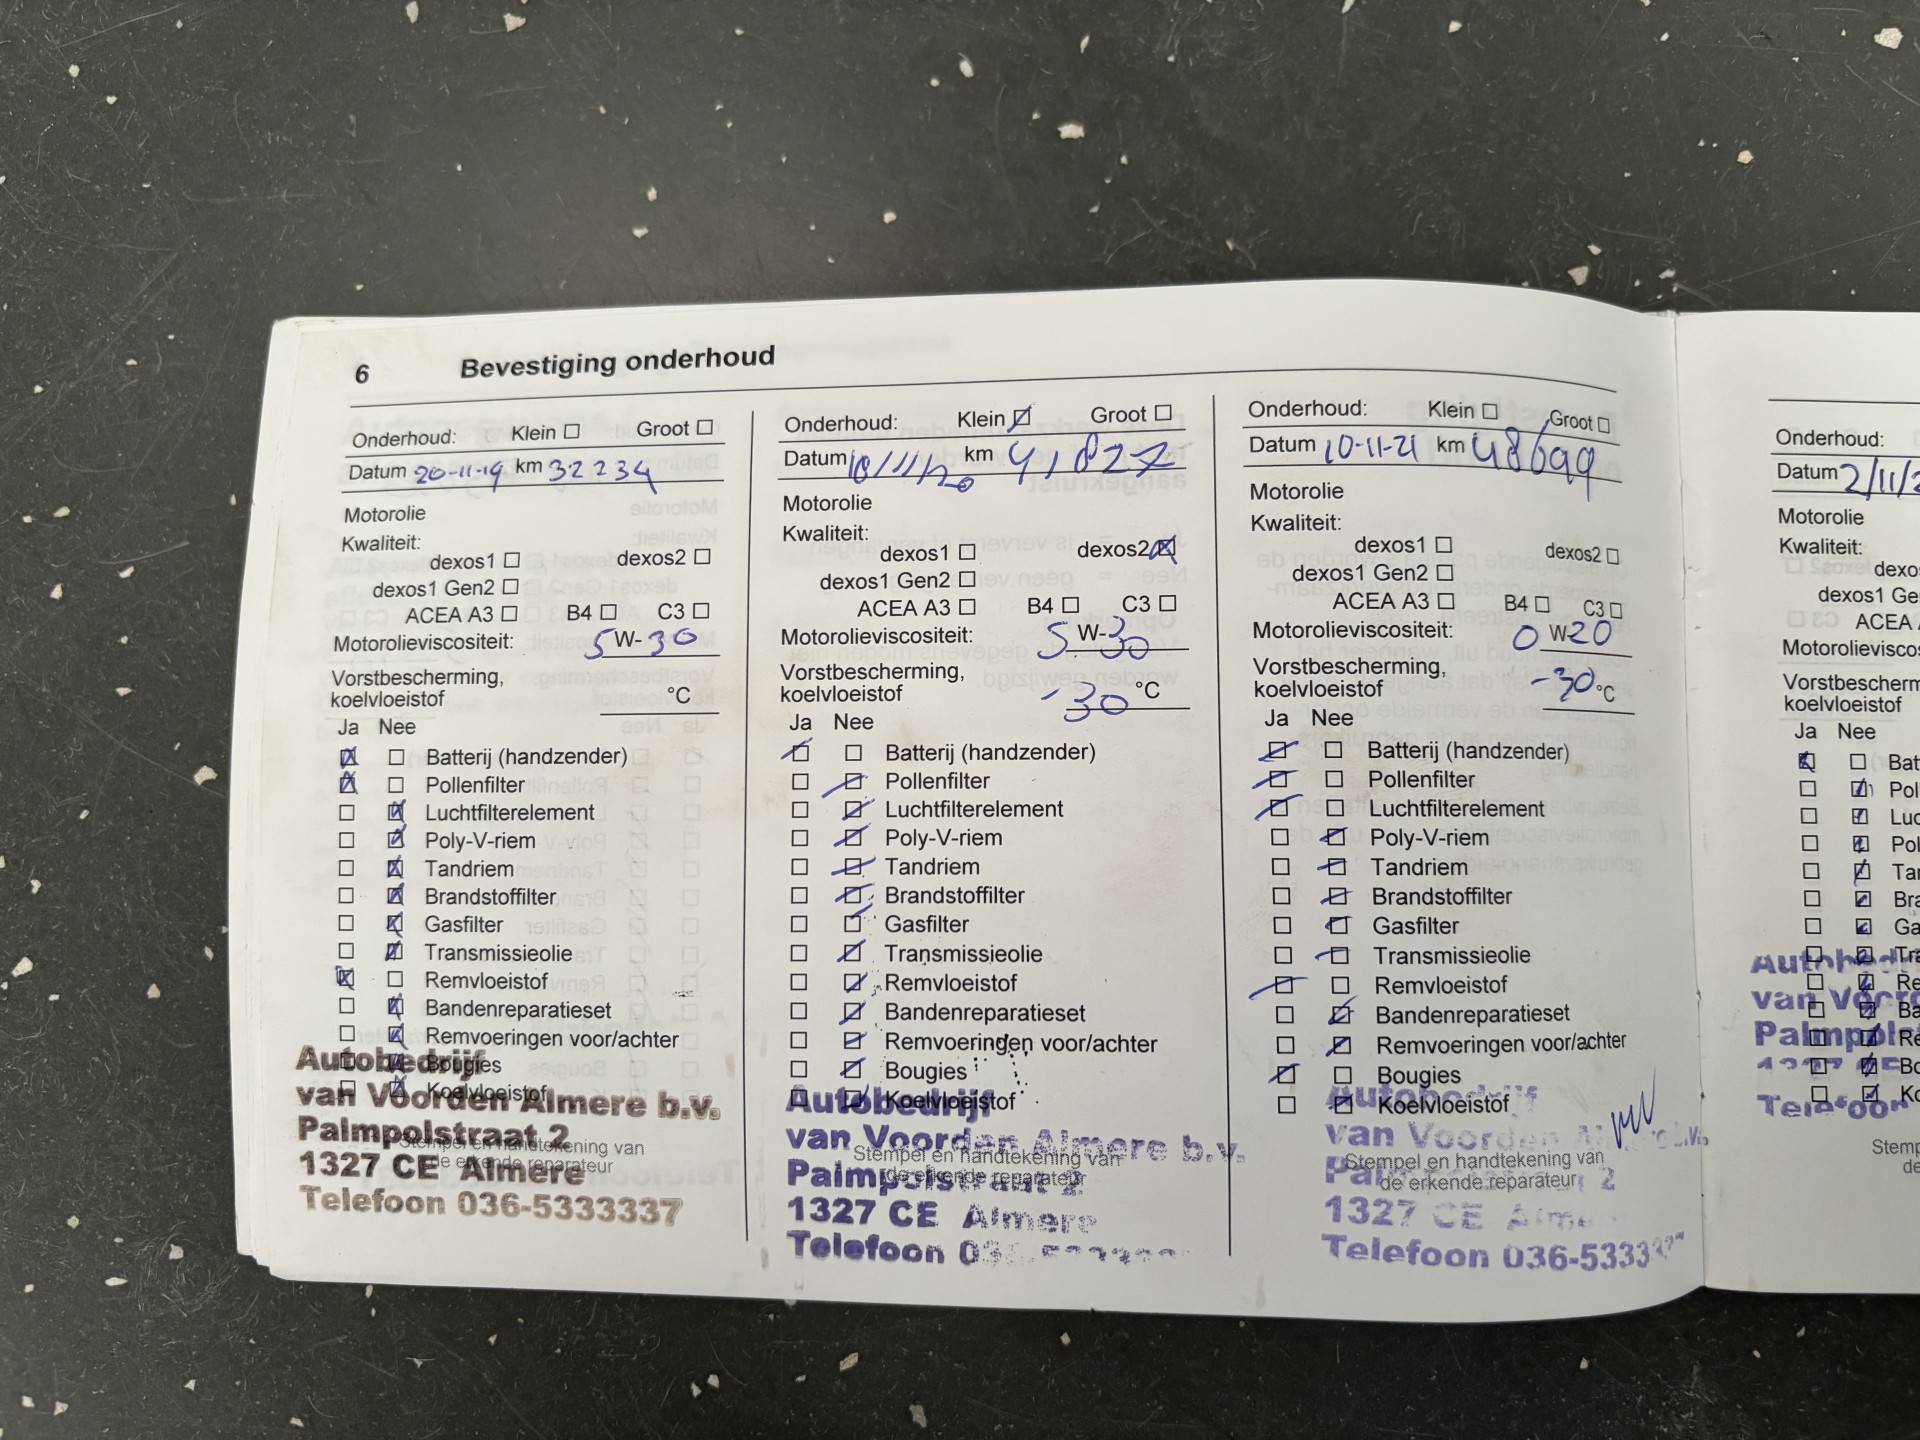 6 Bevestiging onderhoud
Onderhoud: Klein Groot
Datum 20-11-19 km 32234
Motorolie
Kwaliteit:
dexos1 dexos2
dexos1 Gen2
ACEA A3 B4 C3
Motorolieviscositeit: 5 W-30
Vorstbescherming,
koelvloeistof °C
Ja Nee
Batterij (handzender)
Pollenfilter
Luchtfilterelement
Poly-V-riem
Tandriem
Brandstoffilter
Gasfilter
Transmissieolie
Remvloeistof
Bandenreparatieset
Remvoeringen voor/achter
Bougies
Koelvloeistof
Autobedrijf
van Voorden Almere b.v.
Palmpolstraat 2
1327 CE Almere
Telefoon 036-5333337
Stempel en handtekening van
de erkende reparateur
Onderhoud: Klein Groot
Datum 10/11/20 km 41827
Motorolie
Kwaliteit:
dexos1 dexos2
dexos1 Gen2
ACEA A3 B4 C3
Motorolieviscositeit: 5 W-30
Vorstbescherming,
koelvloeistof -30 °C
Ja Nee
Batterij (handzender)
Pollenfilter
Luchtfilterelement
Poly-V-riem
Tandriem
Brandstoffilter
Gasfilter
Transmissieolie
Remvloeistof
Bandenreparatieset
Remvoeringen voor/achter
Bougies
Koelvloeistof
Autobedrijf
van Voorden Almere b.v.
Palmpolstraat 2
1327 CE Almere
Telefoon
Stempel en handtekening van
de erkende reparateur
Onderhoud: Klein Groot
Datum 10-11-21 km 48699
Motorolie
Kwaliteit:
dexos1 dexos2
dexos1 Gen2
ACEA A3 B4 C3
Motorolieviscositeit: 0 W-20
Vorstbescherming,
koelvloeistof -30 °C
Ja Nee
Batterij (handzender)
Pollenfilter
Luchtfilterelement
Poly-V-riem
Tandriem
Brandstoffilter
Gasfilter
Transmissieolie
Remvloeistof
Bandenreparatieset
Remvoeringen voor/achter
Bougies
Koelvloeistof
Autobedrijf
van Voorden
2
1327 CE
Telefoon 036-5333
Stempel en handtekening van
de erkende reparateur
Onderhoud:
Datum 2/11/2
Motorolie
Kwaliteit:
dexos
dexos1 Ge
ACEA
Motorolieviscos
Vorstbescherm
koelvloeistof
Ja Nee
Bat
Pol
Luc
Pol
Tar
Bra
Ga
Tra
Re
Ba
Re
Bo
Ko
Autobedri
van Voor
Palmpols
Telefoon
Stemp
de